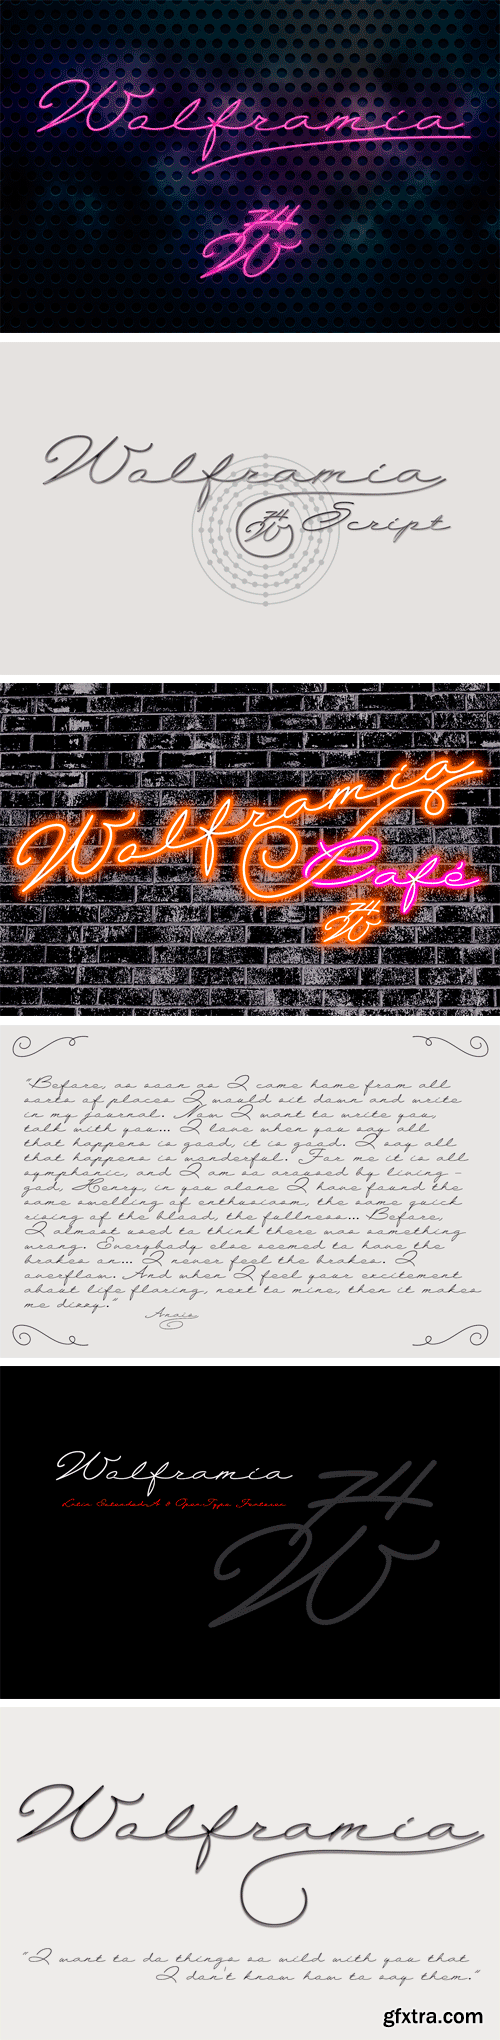 Wolframia
74
W
Wolframia
74
W
Script
Wolframia
Café
74
W
"Before, as soon as I came home from all
sorts of places I would sit down and write
in my journal. Now I want to write you,
talk with you... I love when you say all
that happens is good, it is good. I say all
that happens is wonderful. For me it is all
symphonic, and I am so aroused by living -
god, Henry, in you alone I have found the
same swelling of enthusiasm, the same quick
rising of the blood, the fullness... Before,
I almost used to think there was something
wrong. Everybody else seemed to have the
brakes on... I never feel the brakes. I
overflow. And when I feel your excitement
about life flaring, next to mine, then it makes
me dizzy."
Anais
Wolframia
Latin Extended-A & OpenType Features
74
W
Wolframia
"I want to do things so wild with you that
I don't know how to say them."
gfxtra.com